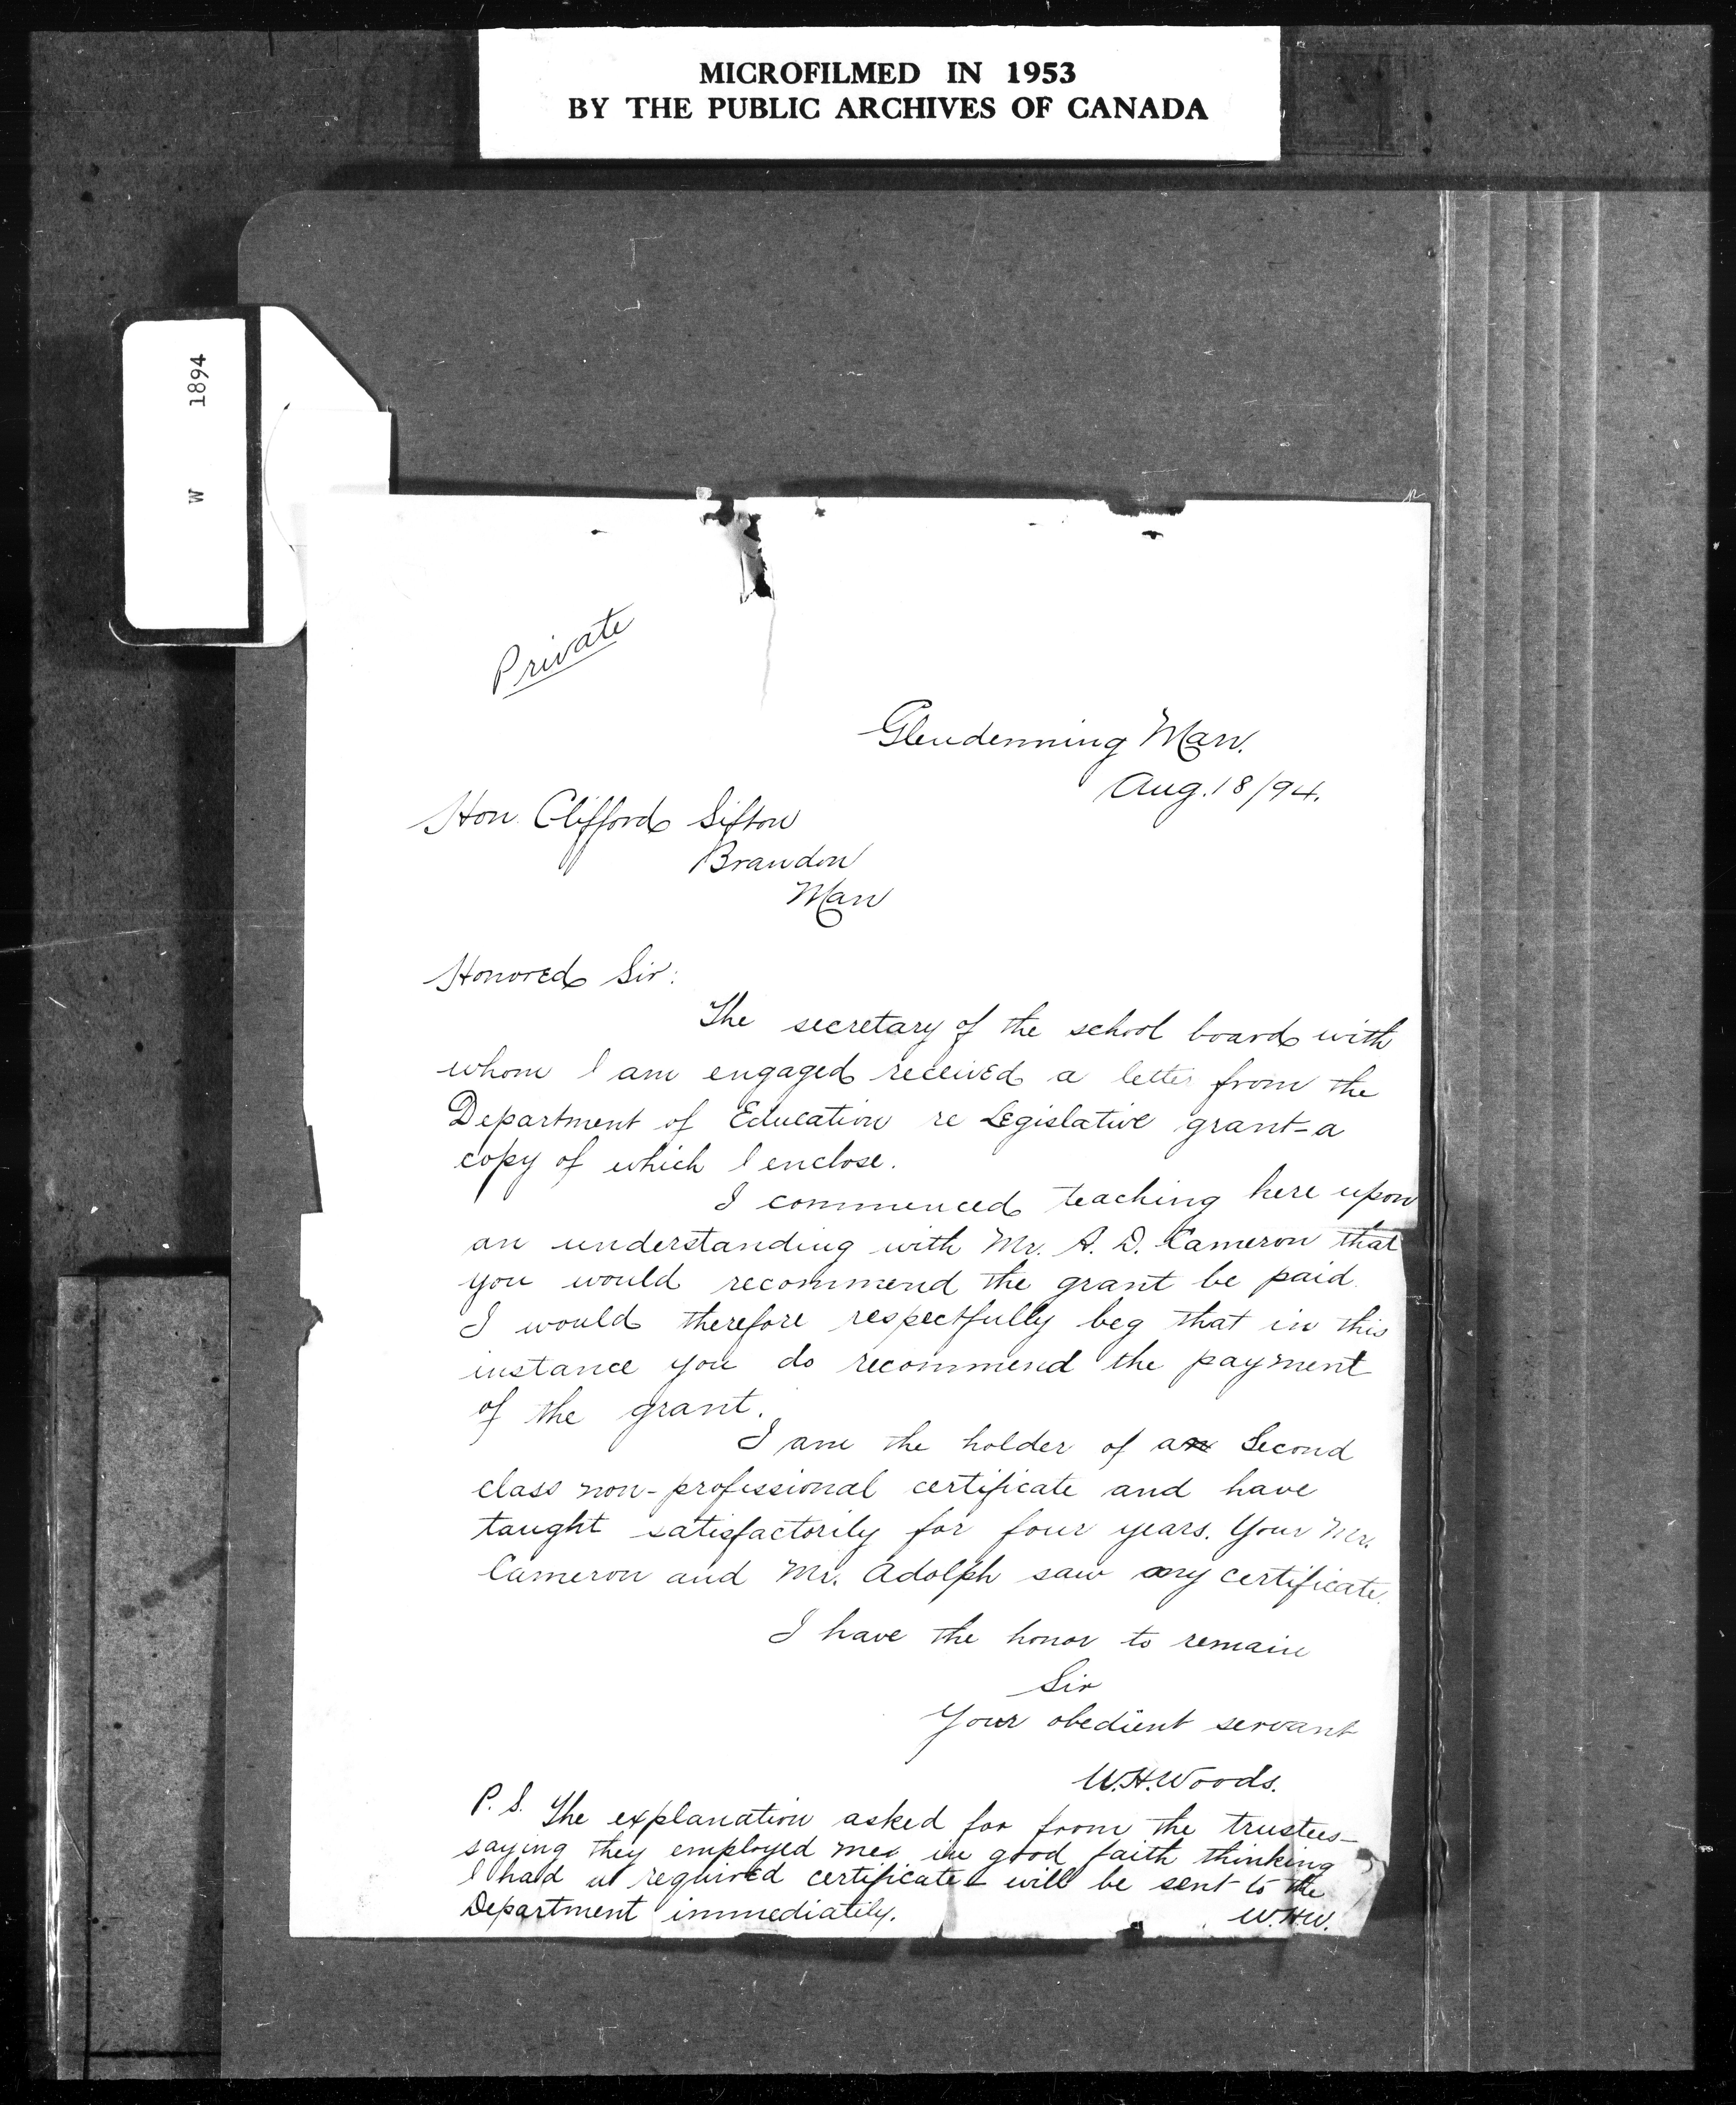 MICROFILMED IN 1953
BY THE PUBLIC ARCHIVES OF CANADA
W 1894
Private
Glendenning Man.
Aug. 18/94.
Hon. Clifford Sifton
Brandon
Man
Honored Sir:
The secretary of the school board with
whom I am engaged received a letter from the
Department of Education re Legislative grant - a
copy of which I enclose.
I commenced teaching here upon
an understanding with Mr. A. D. Cameron that
you would recommend the grant be paid.
I would therefore respectfully beg that in this
instance you do recommend the payment
of the grant.
I am the holder of a Second
class non-professional certificate and have
taught satisfactorily for four years. Your Mr.
Cameron and Mr. Adolph saw my certificate.
I have the honor to remain
Sir
Your obedient servant
W.H. Woods.
P.S. The explanation asked for from the trustees -
saying they employed me in good faith thinking
I had required certificate - will be sent to the
Department immediately. W.H.W.